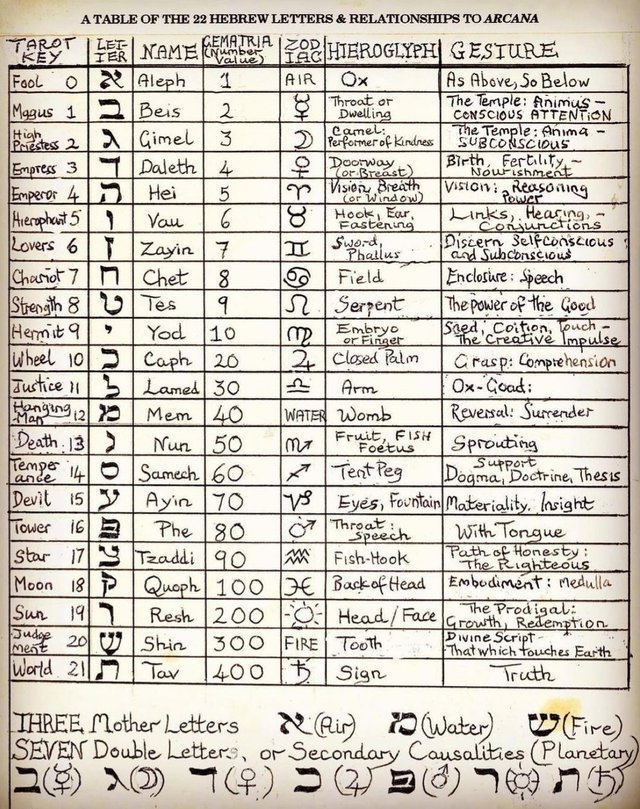 A TABLE OF THE 22 HEBREW LETTERS & RELATIONSHIPS TO ARCANA
TAROT KEY LETTER NAME GEMATRIA (Number Value) ZODIAC HIEROGLYPH GESTURE
Fool 0 א Aleph 1 AIR Ox As Above, So Below
Magus 1 ב Beis 2 ☿ Throat or Dwelling The Temple: Animus – CONSCIOUS ATTENTION
High Priestess 2 ג Gimel 3 ☽ Camel: Performer of Kindness The Temple: Anima - SUBCONSCIOUS
Empress 3 ד Daleth 4 ♀ Doorway (or Breast) Birth, Fertility, – Nourishment
Emperor 4 ה Hei 5 ♈ Vision, Breath (or Window) Vision: Reasoning Power
Hierophant 5 ו Vau 6 ♉ Hook, Ear, Fastening Links, Hearing, – Conjunctions
Lovers 6 ז Zayin 7 ♊ Sword, Phallus Discern Selfconscious and Subconscious
Chariot 7 ח Chet 8 ♋ Field Enclosure: Speech
Strength 8 ט Tes 9 ♌ Serpent The power of the Good
Hermit 9 י Yod 10 ♍ Embryo or Finger Seed, Coition, Touch – The Creative Impulse
Wheel 10 כ Caph 20 ♃ Closed Palm Grasp: Comprehension
Justice 11 ל Lamed 30 ♎ Arm Ox-Goad:
Hanging Man 12 מ Mem 40 WATER Womb Reversal: Surrender
Death 13 נ Nun 50 ♏ Fruit, FISH Foetus Sprouting
Temperance 14 ס Samech 60 ♐ Tent Peg Support Dogma, Doctrine, Thesis
Devil 15 ע Ayin 70 ♑ Eyes, Fountain Materiality. Insight
Tower 16 פ Phe 80 ♂ Throat: Speech With Tongue
Star 17 צ Tzaddi 90 ♒ Fish-Hook Path of Honesty: The Righteous
Moon 18 ק Quoph 100 ♓ Back of Head Embodiment: Medulla
Sun 19 ר Resh 200 ☼ Head/Face The Prodigal: Growth, Redemption
Judgement 20 ש Shin 300 FIRE Tooth Divine Script – That which touches Earth
World 21 ת Tav 400 ♄ Sign Truth
THREE Mother Letters א (Air) מ (Water) ש (Fire)
SEVEN Double Letters, or Secondary Causalities (Planetary)
ב(☿) ג(☽) ד(♀) כ(♃) פ(♂) ר(☼) ת(♄)